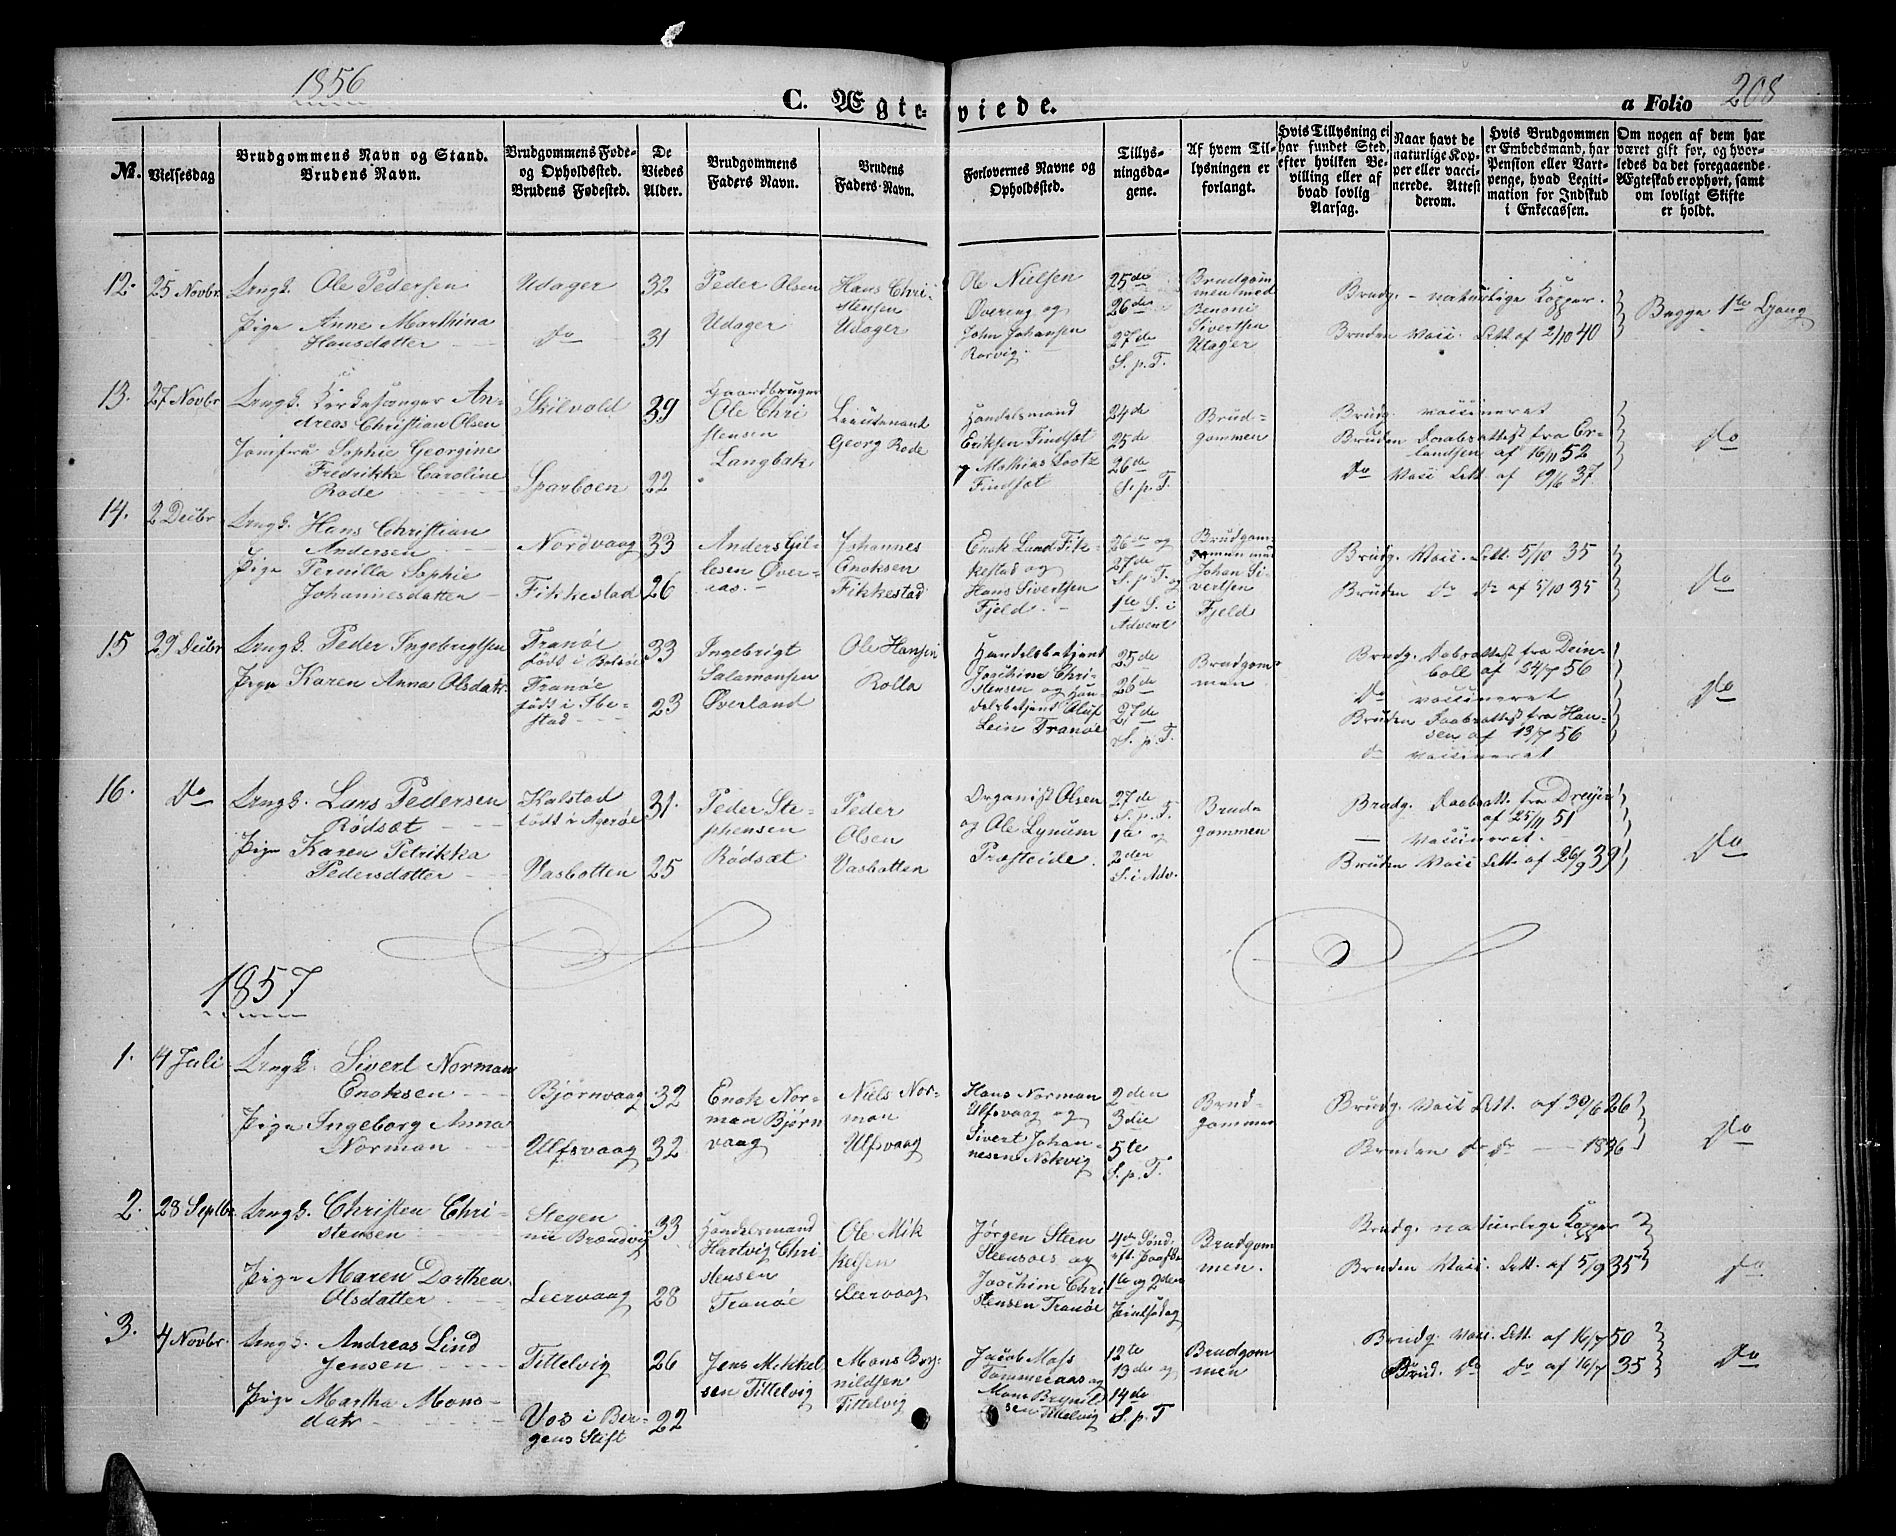 1856
C. Ægteviede.
a Folio 208
No.
Vielsesdag
Brudgommens Navn og Stand.
Brudens Navn.
Brudgommens Føde-
og Opholdssted.
Brudens Fødested.
De
Viedes
Alder.
Brudgommens
Faders Navn.
Brudens
Faders Navn.
Forlovernes Navne og
Opholdssted.
Tillys-
ningsda-
gene.
Af hvem Til-
lysningen er
forlangt.
Hvis Tillysning ei
har fundet Sted,
efter hvilken Be-
villing eller af
hvad lovlig
Aarsag.
Naar havt de
naturlige Kop-
per eller vacci-
nerede. Attest
derom.
Hvis Brudgommen
er Embedsmand, har
Pension eller Vart-
penge, hvad Legiti-
mation for Indskud
i Enkecassen.
Om nogen af dem har
været gift før, og hvor-
ledes da det foregaaende
Ægteskab er ophørt, samt
om lovligt Skifte
er holdt.
12. 25 Novbr. Ungk. Ole Pedersen
Pige Anne Marthina
Hansdatter
Udager
do
32
31
Peder Olsen
Udager
Hans Chri-
stensen
Udager
Ole Nielsen
Øvereng og
John Johansen
Rørvig.
25de
26de
27de
S. p. T.
Brudgom
men med
Benoni
Sivertsen
Udager
Brudg. - naturlige Kopper.
Bruden Vacc. Att. af 2/10 40
Begge 1te Gang
13. 27 Novbr Ungk. Kirkesanger An-
dreas Christian Olsen
Jomfru Sophie Georgine
Fredrikke Caroline
Rode
Skilvold
Sparboen
39
22
Gaardbruger
Ole Chri
stensen
Langbak.
Lieutenant
Georg Rode
Handelsmand
Eriksen Findsæt
Mathias Lootz
Findsæt
24de
25de
26de
S. p. T.
Brud-
gommen
Brudg. vaccineret
Bruden Daabsattest fra Ør-
landsen af 16/11 52
do Vacc Att. af 19/6 37
do
14. 2 Decbr Ungk. Hans Christian
Andersen
Pige Pernilla Sophie
Johannesdatter
Nordvaag
Fikkestad
33
26
Anders Gil-
lesen Øver-
aas.
Johannes
Enoksen
Fikkestad
Enok Lund Fik-
kestad og
Hans Sivertsen
Fjeld.
26de og
27de
S. p. T. og
1te S. i
Advent
Brudgom-
men med
Johan Si-
vertsen
Fjeld
Brudg. Vacc. Att. 5/10 35
Bruden do do af 5/10 35
do
15 29 Decbr Ungk. Peder Ingebrigtsen
Pige Karen Anna Olsdatr.
Tranöe
født i Bolsöe
Tranöe
født i Ibe-
stad
33
23
Ingebrigt
Salamonsen
Øverland
Ole Hansen
Rolla
Handelsbetjent
Joachim Chri-
stensen og Han-
delsbetjent Oluf
Lein Tranöe
25de
26de
27de
S. p. T.
Brudgom-
men.
Brudg. Dabsattest fra Dein-
boll af 24/7 56
do vaccineret
Bruden Daabsattest fra Han-
sen af 13/7 56
do vaccineret
do
16. do Ungk. Lars Pedersen
Rödsæt
Pige Karen Petrikka
Pedersdatter
Kalstad
født i Agerøe
Vasbotten
31.
25
Peder Ste-
phensen
Rödsæt
Peder
Olsen
Vasbotten
Organist Olsen
og Ole Lynum
Præsteide.
27de
S. p. T.
1te og
2den
S. i Adv.
Brud-
gommen
Brudg. Daabsatt. fra Dreyer
af 25/11 51
— vaccineret.
Bruden Vacc Att. af 26/9 39
do
1857
1. 4 Juli Ungk. Sivert Norman
Enoksen
Pige Ingeborg Anna
Norman
Bjørnvaag
Ulfsvaag
32
32
Enok Nor-
man Bjørn
vaag
Niels Nor-
man
Ulfsvaag
Hans Norman
Ulfsvaag og
Sivert Johan-
nesen Nekvig
2den
3die
5te
S. p. T.
Brud-
gommen
Brudg. Vacc Att. af 30/6 26
Bruden do do — 1836
do
2. 28 Septbr. Ungk. Christen Chri-
stensen
Pige Maren Dorthea
Olsdatter
Stegen
nu Brændvig
Leervaag
33
28
Handelsmand
Hartvig Chri
stensen
Tranöe
Ole Mik
kelsen
Leervaag
Jørgen Steen
Steensoes og
Joachim Chri
stensen Tranöe
4de Sönd.
eft. Paaske
1te og 2den
Pintsedag
Brudgom
men.
Brudg. naturlige Kopper
Bruden Vacc. Att. af 5/9 35
do
3. 4 Novbr. Ungk. Andreas Lind
Jensen
Pige Martha Mons-
datr
Tittelvig
Vos i Ber-
gens Stift
26
22
Jens Mikkel
sen Tittelvig
Mons Bryn-
nildsen
Tittelvig
Jacob Moss
Tommeraas og
Mons Brynild
sen Tittelvig
12te
13de og
14de
S. p. T
Brudgom
men
Brudg. Vacc. Att. af 16/7 50
Brud. do do af 16/7 35
do